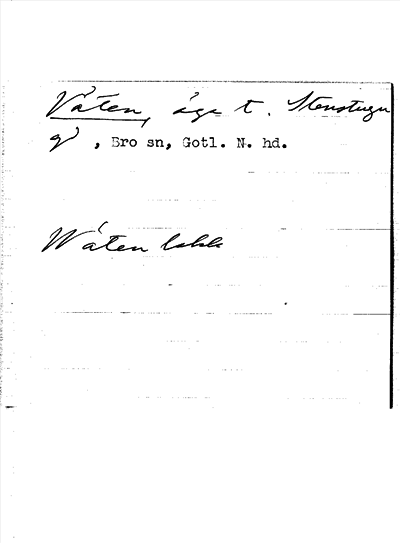 Våten, äga t. Stenstugu
g , Bro sn, Gotl. N. hd.
Wåten